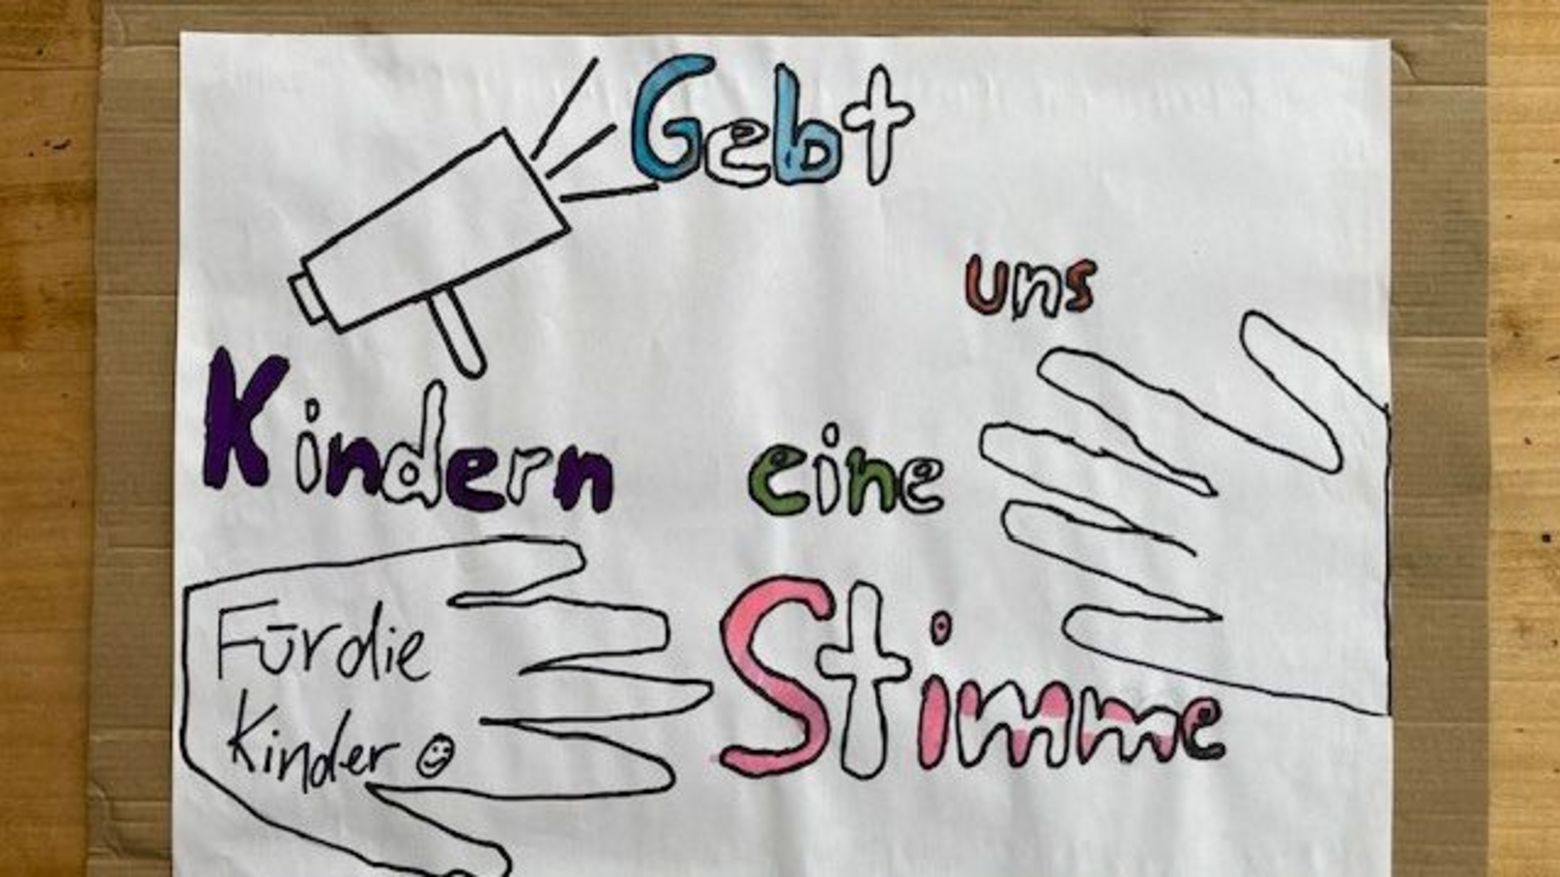 Gebt
uns
Kindern eine
Stimme
Für die
Kinder ☺